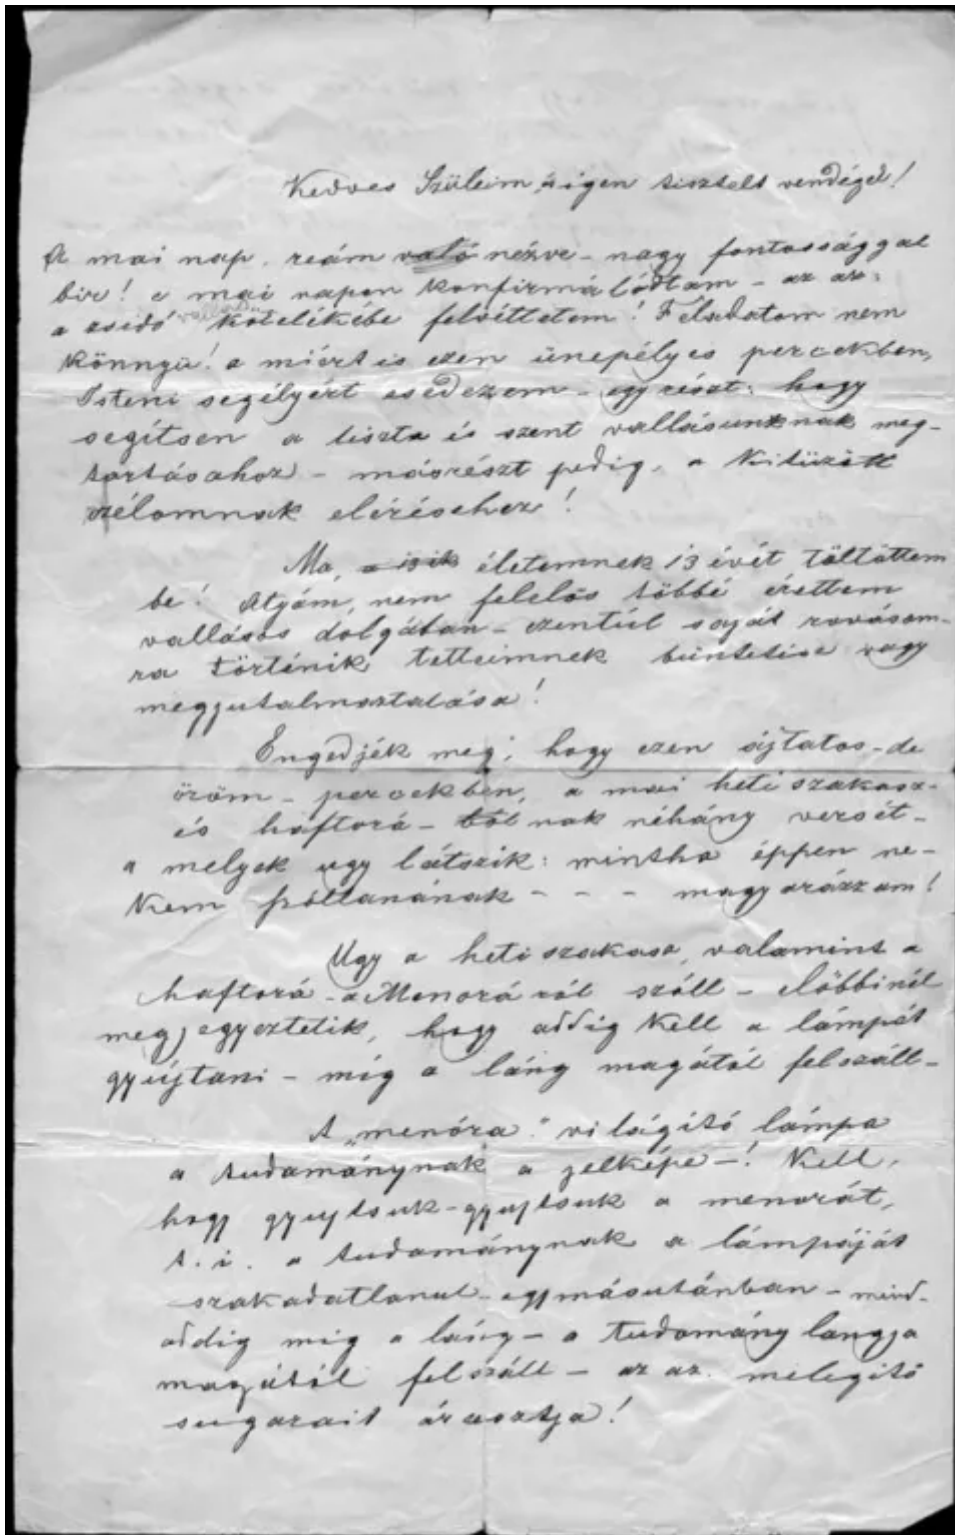 Kedves Szüleim, s igen tisztelt vendégek!
A mai nap, reám való nézve - nagy fontossággal
bir! e mai napon konfirmálódtam - az az:
a zsidó vallás kötelékébe felvéttetem! Feladatom nem
könnyű! a miért is ezen ünepélyes percekben,
Isteni segélyért esedezem - egyrészt: hogy
segítsen a tiszta és szent vallásunknak meg-
tartásához - másrészt pedig, a kitüzött
czélomnak eléréséhez!
Ma, életemnek 13 évét töltöttem
be! Atyám, nem felelős többé érettem
vallásos dolgában - ezentúl saját rovásom-
ra történik tetteimnek büntetése vagy
megjutalmaztatása!
Engedjék meg, hogy ezen ájtatos - de
öröm - percekben, a mai heti szakasz-
és haftorá - ból nak néhány versét -
a melyek ugy látszik: mintha éppen ne-
kem szóllanának - - - magyarázzam!
Ugy a heti szakasz, valamint a
haftorá - a Menoráról szóll - előbbinél
megjegyeztetik, hogy addig kell a lámpát
gyújtani - míg a láng magától felszáll -
A "menóra" világító lámpa
a tudománynak a jelképe -! Kell,
hogy gyujtsuk - gyujtsuk a menorát,
t. i. a tudománynak a lámpáját
szakadatlanul - egymásutánban - mind-
addig míg a láng - a tudomány langja
magától felszáll - az az. melegítő
sugarait árasztja!